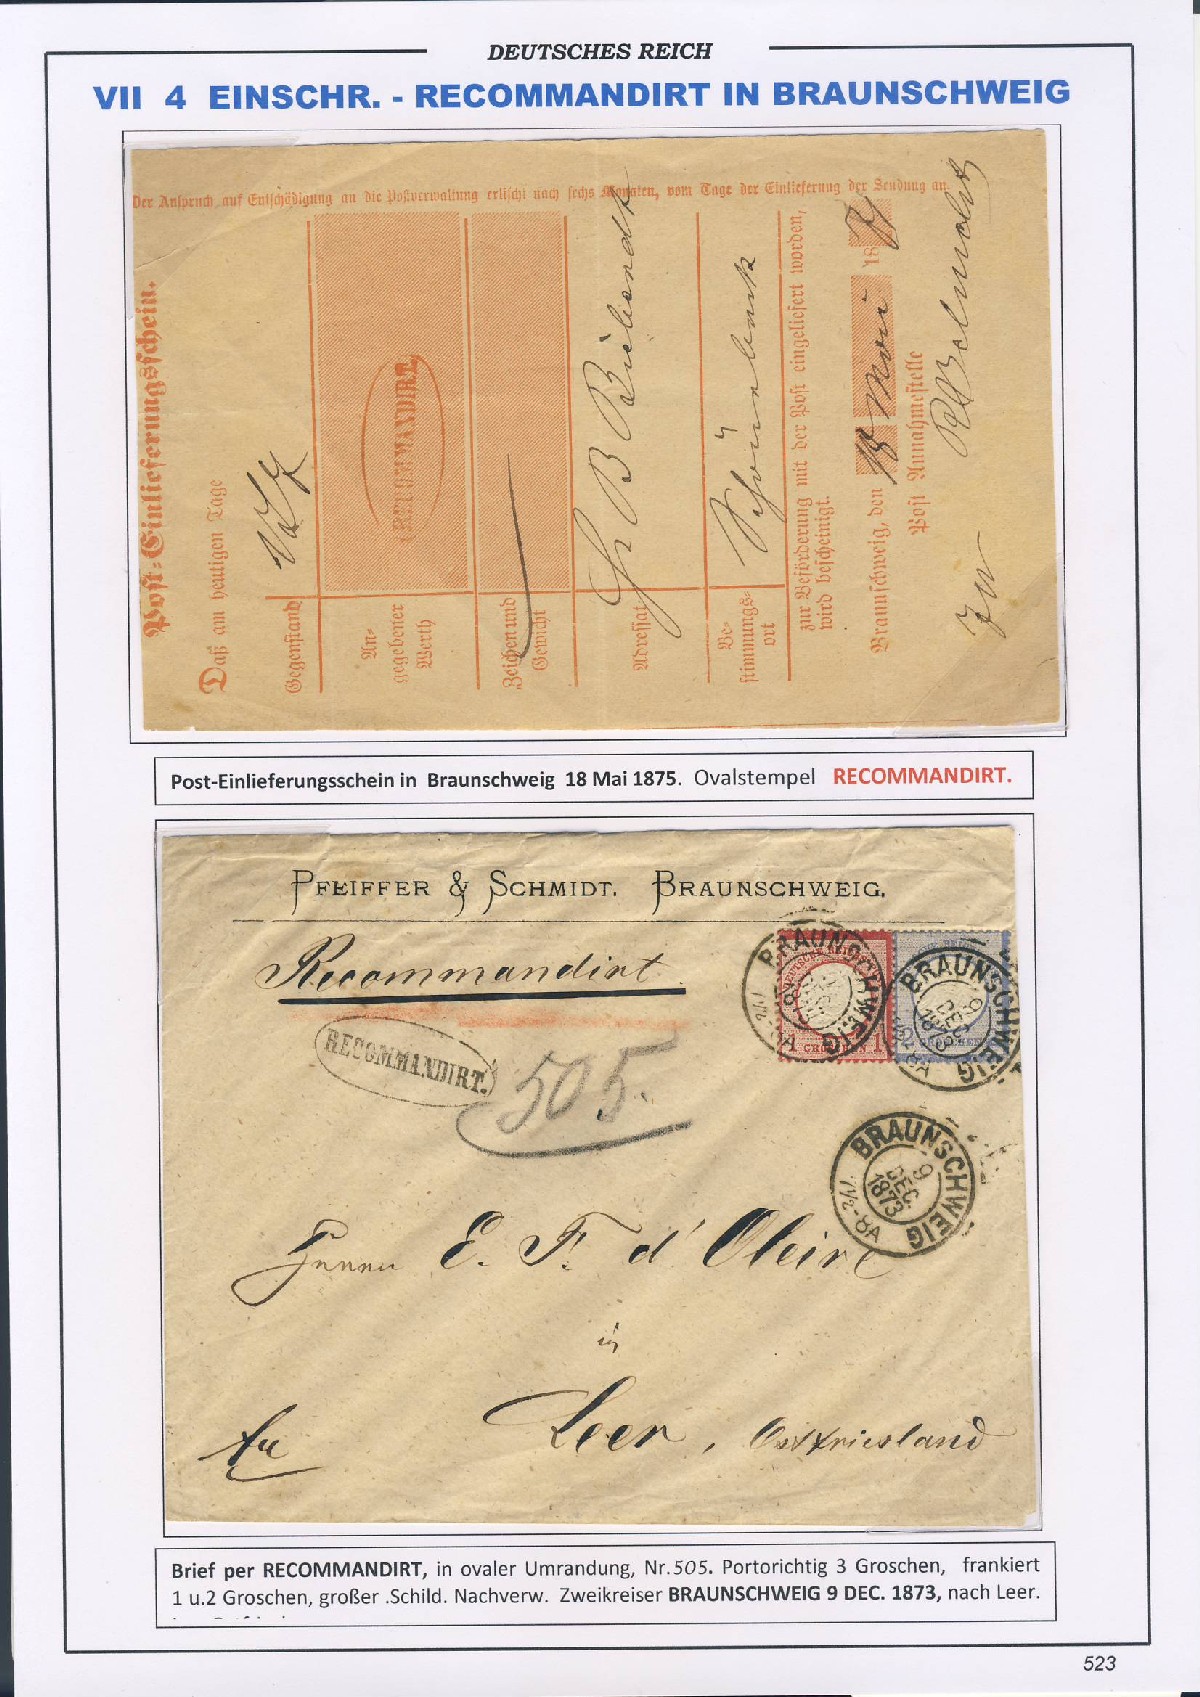 DEUTSCHES REICH
VII 4 EINSCHR. - RECOMMANDIRT IN BRAUNSCHWEIG
Der Anspruch auf Entschädigung an die Postverwaltung erlischt nach sechs Monaten, vom Tage der Einlieferung der Sendung an.
Post-Einlieferungsschein.
Daß am heutigen Tage
Gegenstand
An-
gegebener
Werth
RECOMMANDIRT.
Zeichen und
Gewicht
Adressat
B
Be-
stimmungs-
ort
zur Beförderung mit der Post eingeliefert worden,
wird bescheinigt.
Braunschweig, den 18 Mai 18
Post Annahmestelle
Post-Einlieferungsschein in Braunschweig 18 Mai 1875. Ovalstempel RECOMMANDIRT.
PFEIFFER & SCHMIDT. BRAUNSCHWEIG.
Recommandirt
RECOMMANDIRT.
505.
BRAUNSCHWEIG
1 GROSCHEN 1
BRAUNSCHWEIG
9
DEC.
1873
BRAUNSCHWEIG
9
DEC.
1873
7½-8A
Herrn E. F. d'Oleire
in
Leer, Ostfriesland
Brief per RECOMMANDIRT, in ovaler Umrandung, Nr.505. Portorichtig 3 Groschen, frankiert
1 u.2 Groschen, großer .Schild. Nachverw. Zweikreiser BRAUNSCHWEIG 9 DEC. 1873, nach Leer.
523